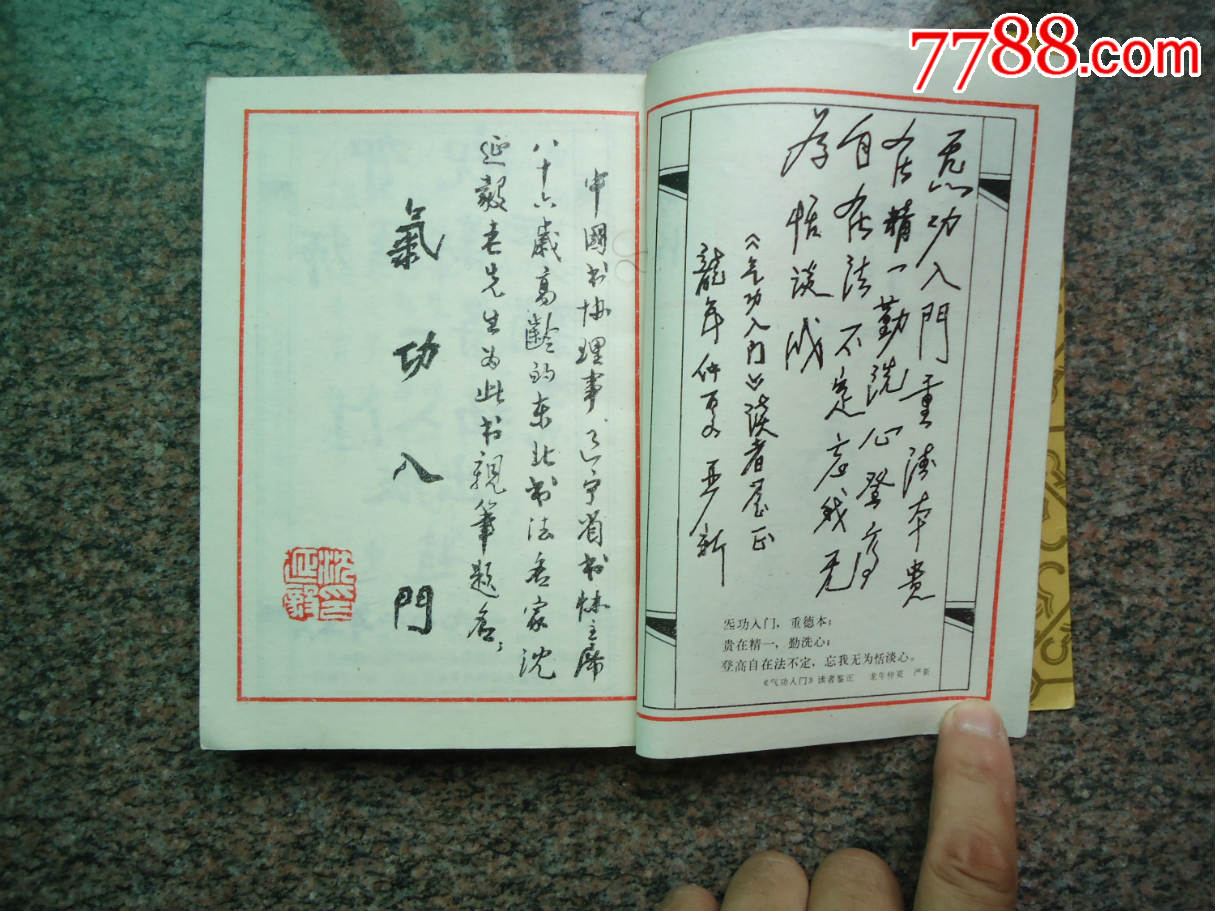 中國书协理事、辽宁省书协主席
八十六歲高龄的东北书法名家沈
延毅老先生为此书親筆題名；
氣功入門
沈印
延毅
炁功入門重德本贵
在精一勤洗心登高
自在法不定忘我无
为恬淡心
《气功入门》读者鉴正
龍年仲夏严新
炁功入门，重德本；
贵在精一，勤洗心；
登高自在法不定，忘我无为恬淡心。
《气功入门》读者鉴正 龙年仲夏 严新
7788.com